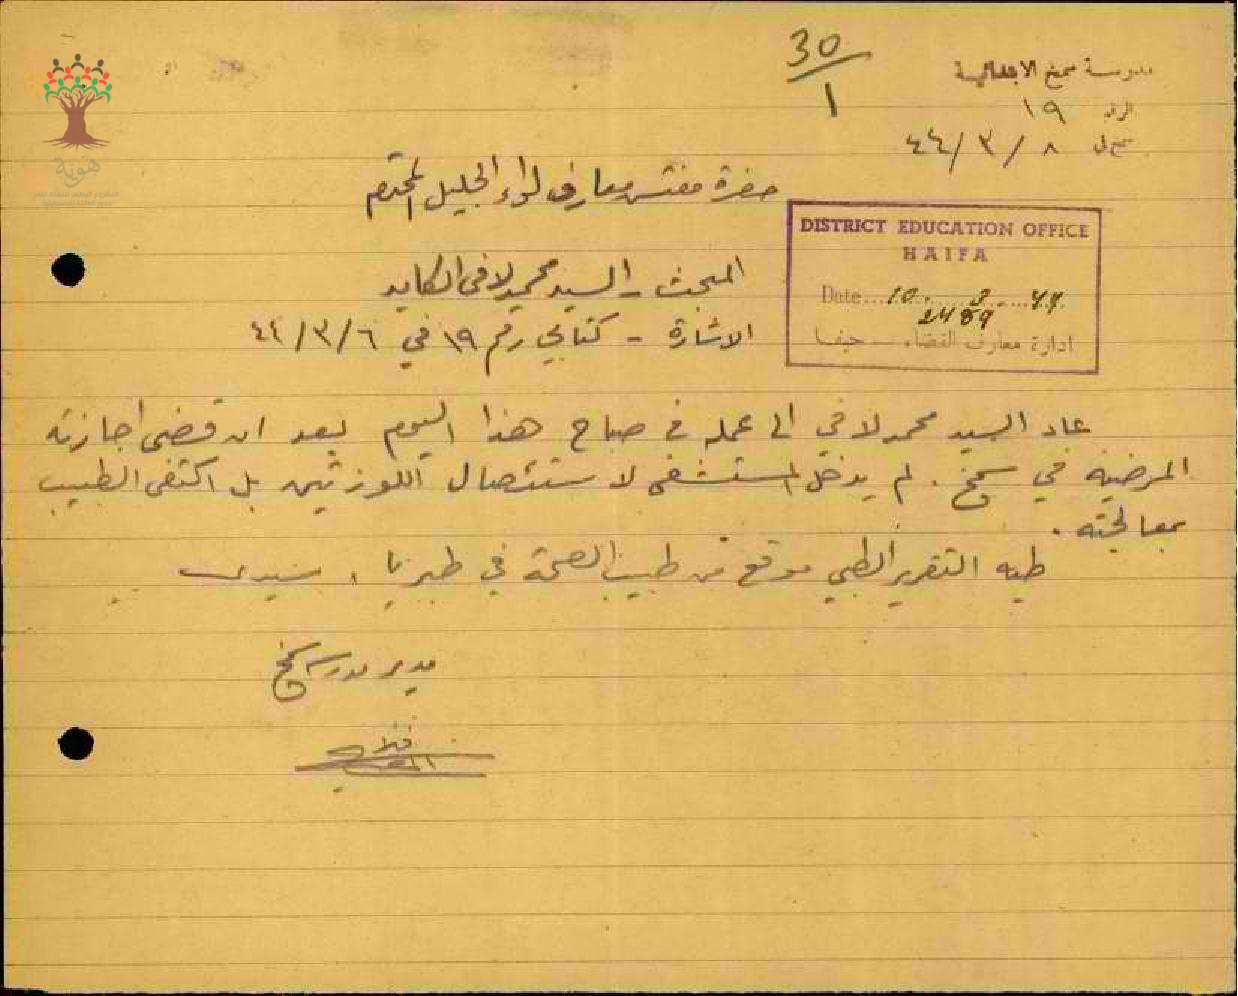 30
1
مدرسة سمخ الابتدائية
الرقم ١٩
سمخ في ٨/٣/٤٤
حضرة مفتش معارف لواء الجليل المحترم
DISTRICT EDUCATION OFFICE
HAIFA
Date...10......3......44
2489
ادارة معارف القضاء — حيفا
المبحث - السيد محمد لافي الكايد
الاشارة - كتابي رقم ١٩ في ٦/٣/٤٤
عاد السيد محمد لافي الى عمله في صباح هذا اليوم بعد ان قضى اجازته
المرضية في سمخ. لم يدخل المستشفى لاستئصال اللوزتين بل اكتفى الطبيب
بمعالجته.
طيه التقرير الطبي موقع من طبيب الصحة في طبريا. سيدي
مدير مدرسة سمخ
هوية